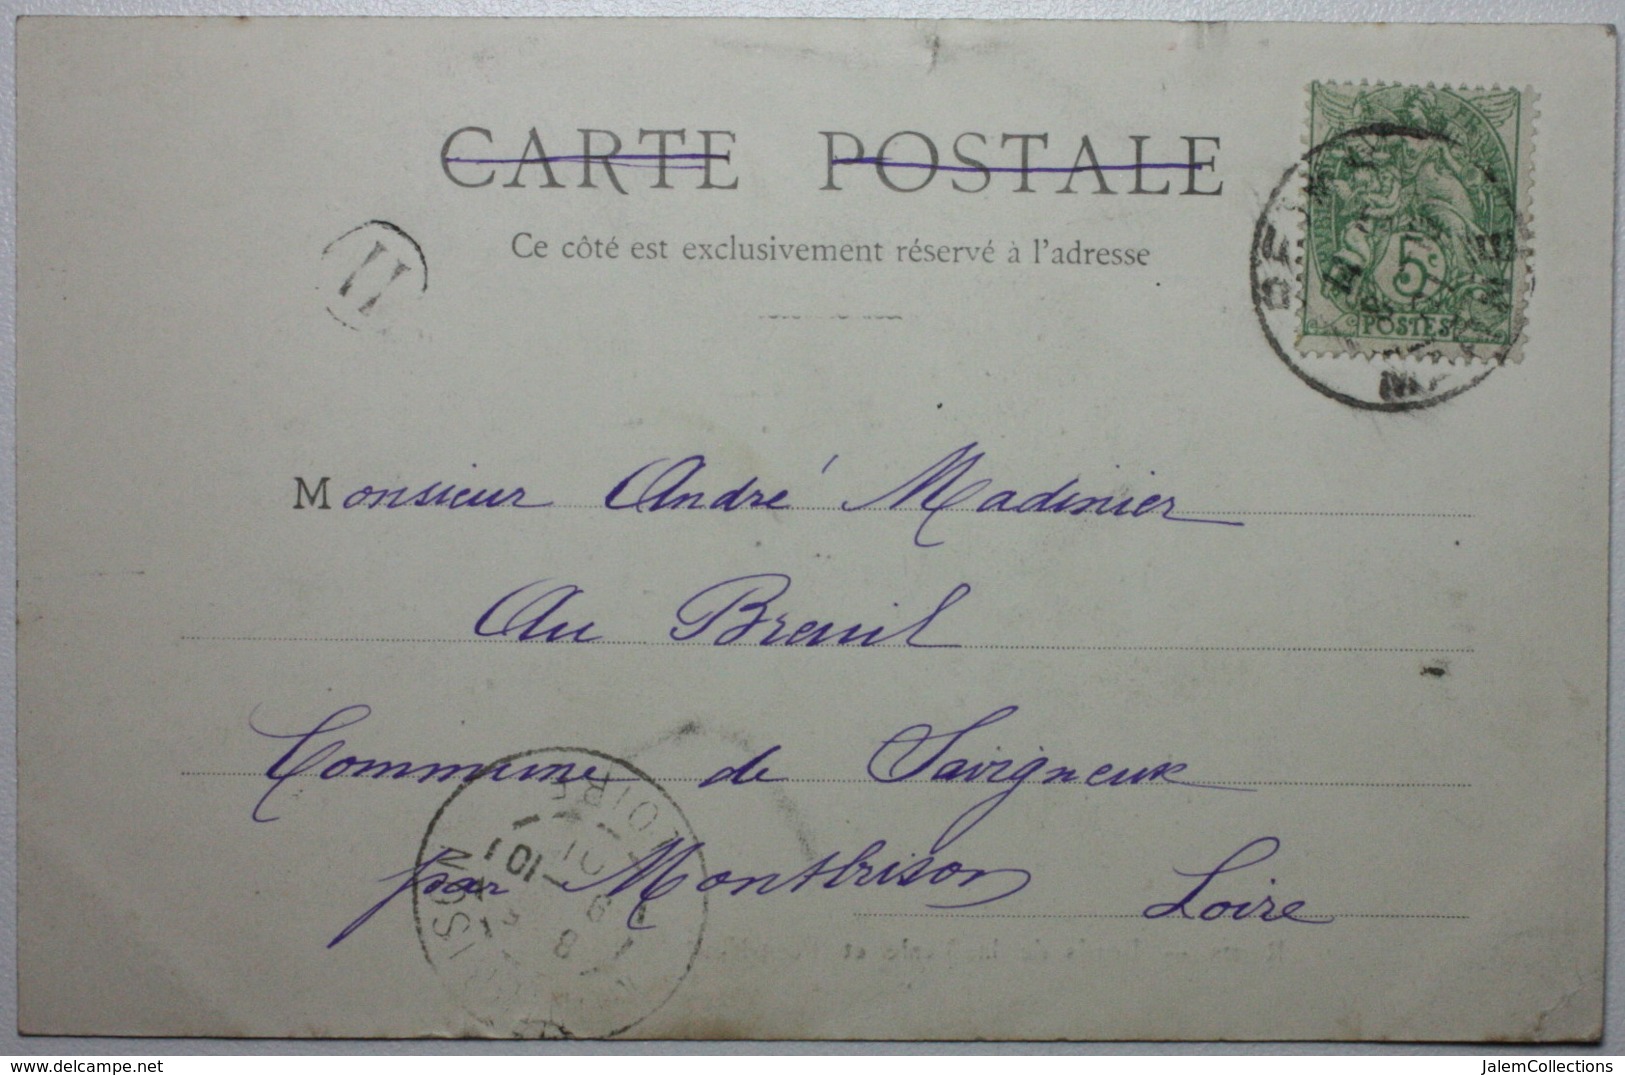 CARTE POSTALE
Ce côté est exclusivement réservé à l'adresse
H
5c
POSTES
Monsieur André Madinier
Au Breuil
Commune de Savigneux
par Montbrison Loire
LOIRE
https://www.delcampe.net
JalemCollections